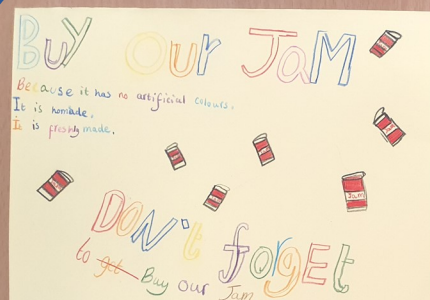 Buy Our JAM
Because it has no artificial colours.
It is homade.
It is freshly made.
Jam
DON't forget
to get Buy our Jam